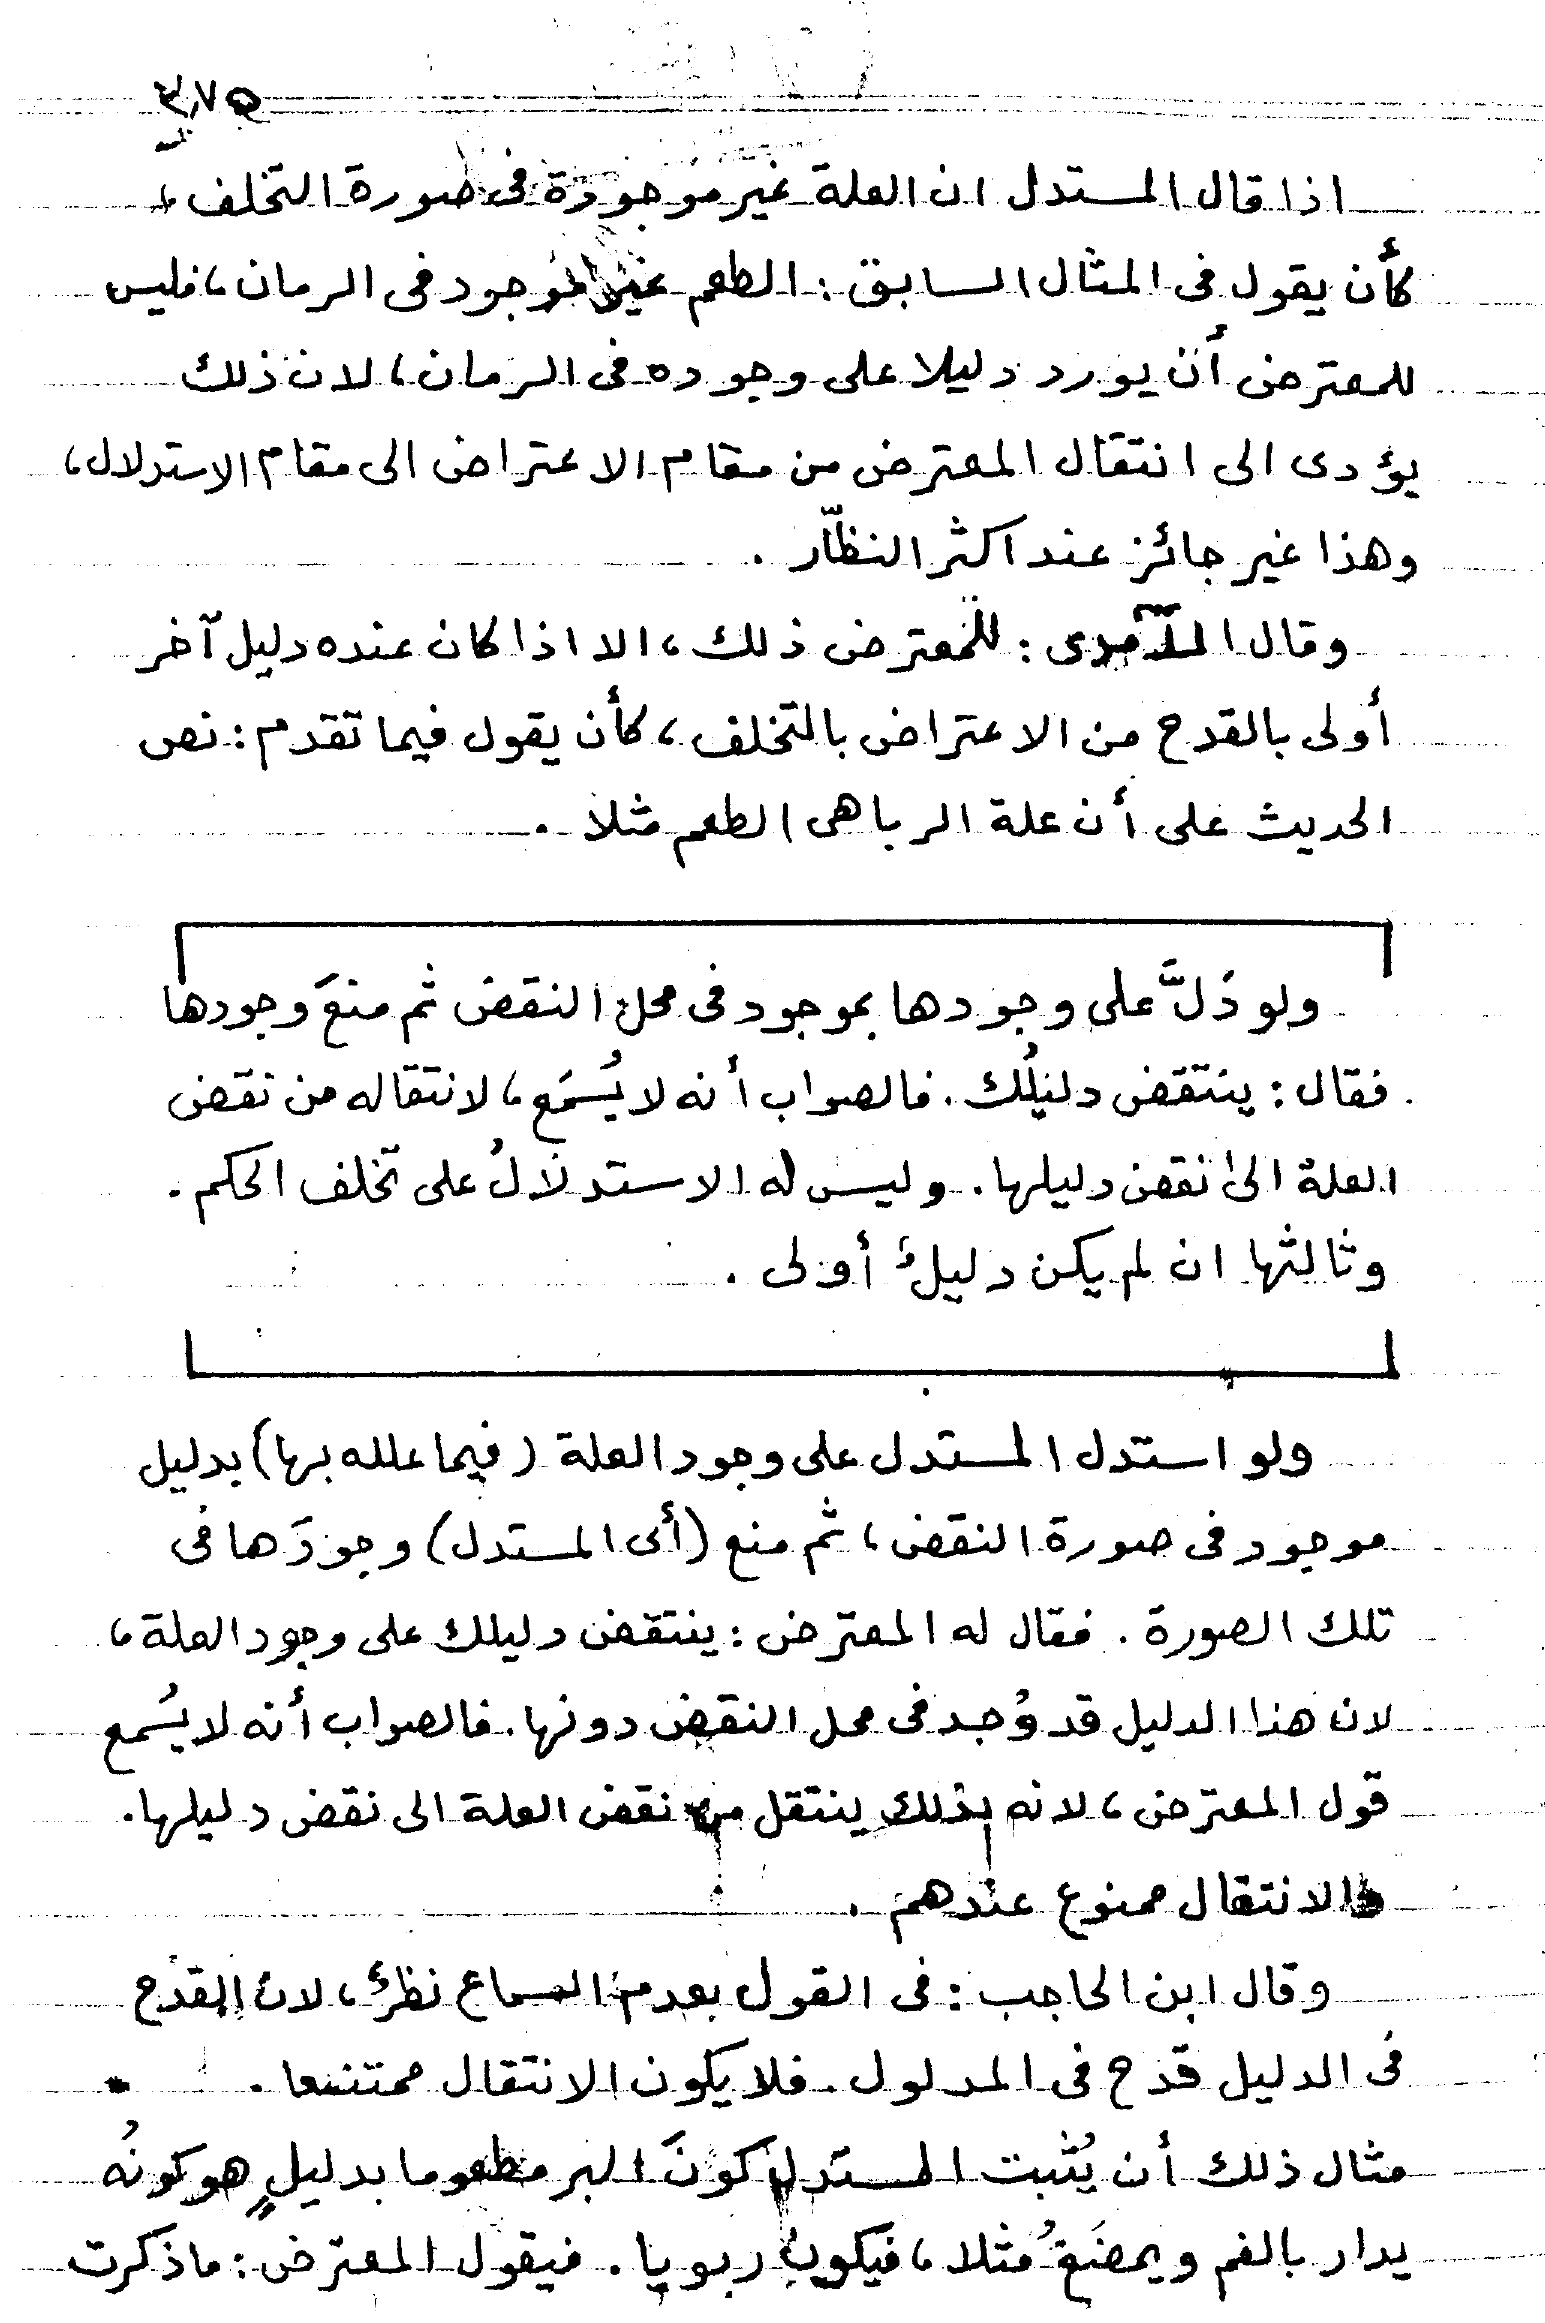 ٣٧٥
اذا قال المستدل ان العلة غير موجودة فى صورة التخلف،
كأن يقول فى المثال السابق : الطعم غير موجود فى الرمان، فليس
للمعترض أن يورد دليلا على وجوده فى الرمان، لان ذلك
يؤدى الى انتقال المعترض من مقام الاعتراض الى مقام الاستدلال،
وهذا غير جائز عند اكثر النظّار .
وقال الآمدى : للمعترض ذلك، الا اذا كان عنده دليل آخر
أولى بالقدح من الاعتراض بالتخلف، كأن يقول فيما تقدم : نص
الحديث على أن علة الربا هى الطعم مثلا .
ولو دَلَّ على وجودها بموجود فى محل النقض ثم منعَ وجودها
فقال : ينتقض دليلُك . فالصواب أنه لا يُسمَع، لانتقاله من نقض
العلة الى نقض دليلها . وليس له الاستدلالُ على تخلف الحكم .
وثالثها ان لم يكن دليلٌ أولى .
ولو استدل المستدل على وجود العلة (فيما علله بها) بدليل
موجود فى صورة النقض، ثم منع (أى المستدل) وجودَها فى
تلك الصورة . فقال له المعترض : ينتقض دليلك على وجود العلة،
لان هذا الدليل قد وُجد فى محل النقض دونها . فالصواب أنه لا يُسمع
قول المعترض، لانه بذلك ينتقل من نقض العلة الى نقض دليلها .
والانتقال ممنوع عندهم .
وقال ابن الحاجب : فى القول بعدم السماع نظرٌ، لان القدح
فى الدليل قدح فى المدلول . فلا يكون الانتقال ممتنعا .
مثال ذلك أن يُثبت المستدل كونَ البر مطعوما بدليلٍ هو كونُه
يدار بالفم ويمضَغُ مثلا، فيكون ربويا . فيقول المعترض : ما ذكرت